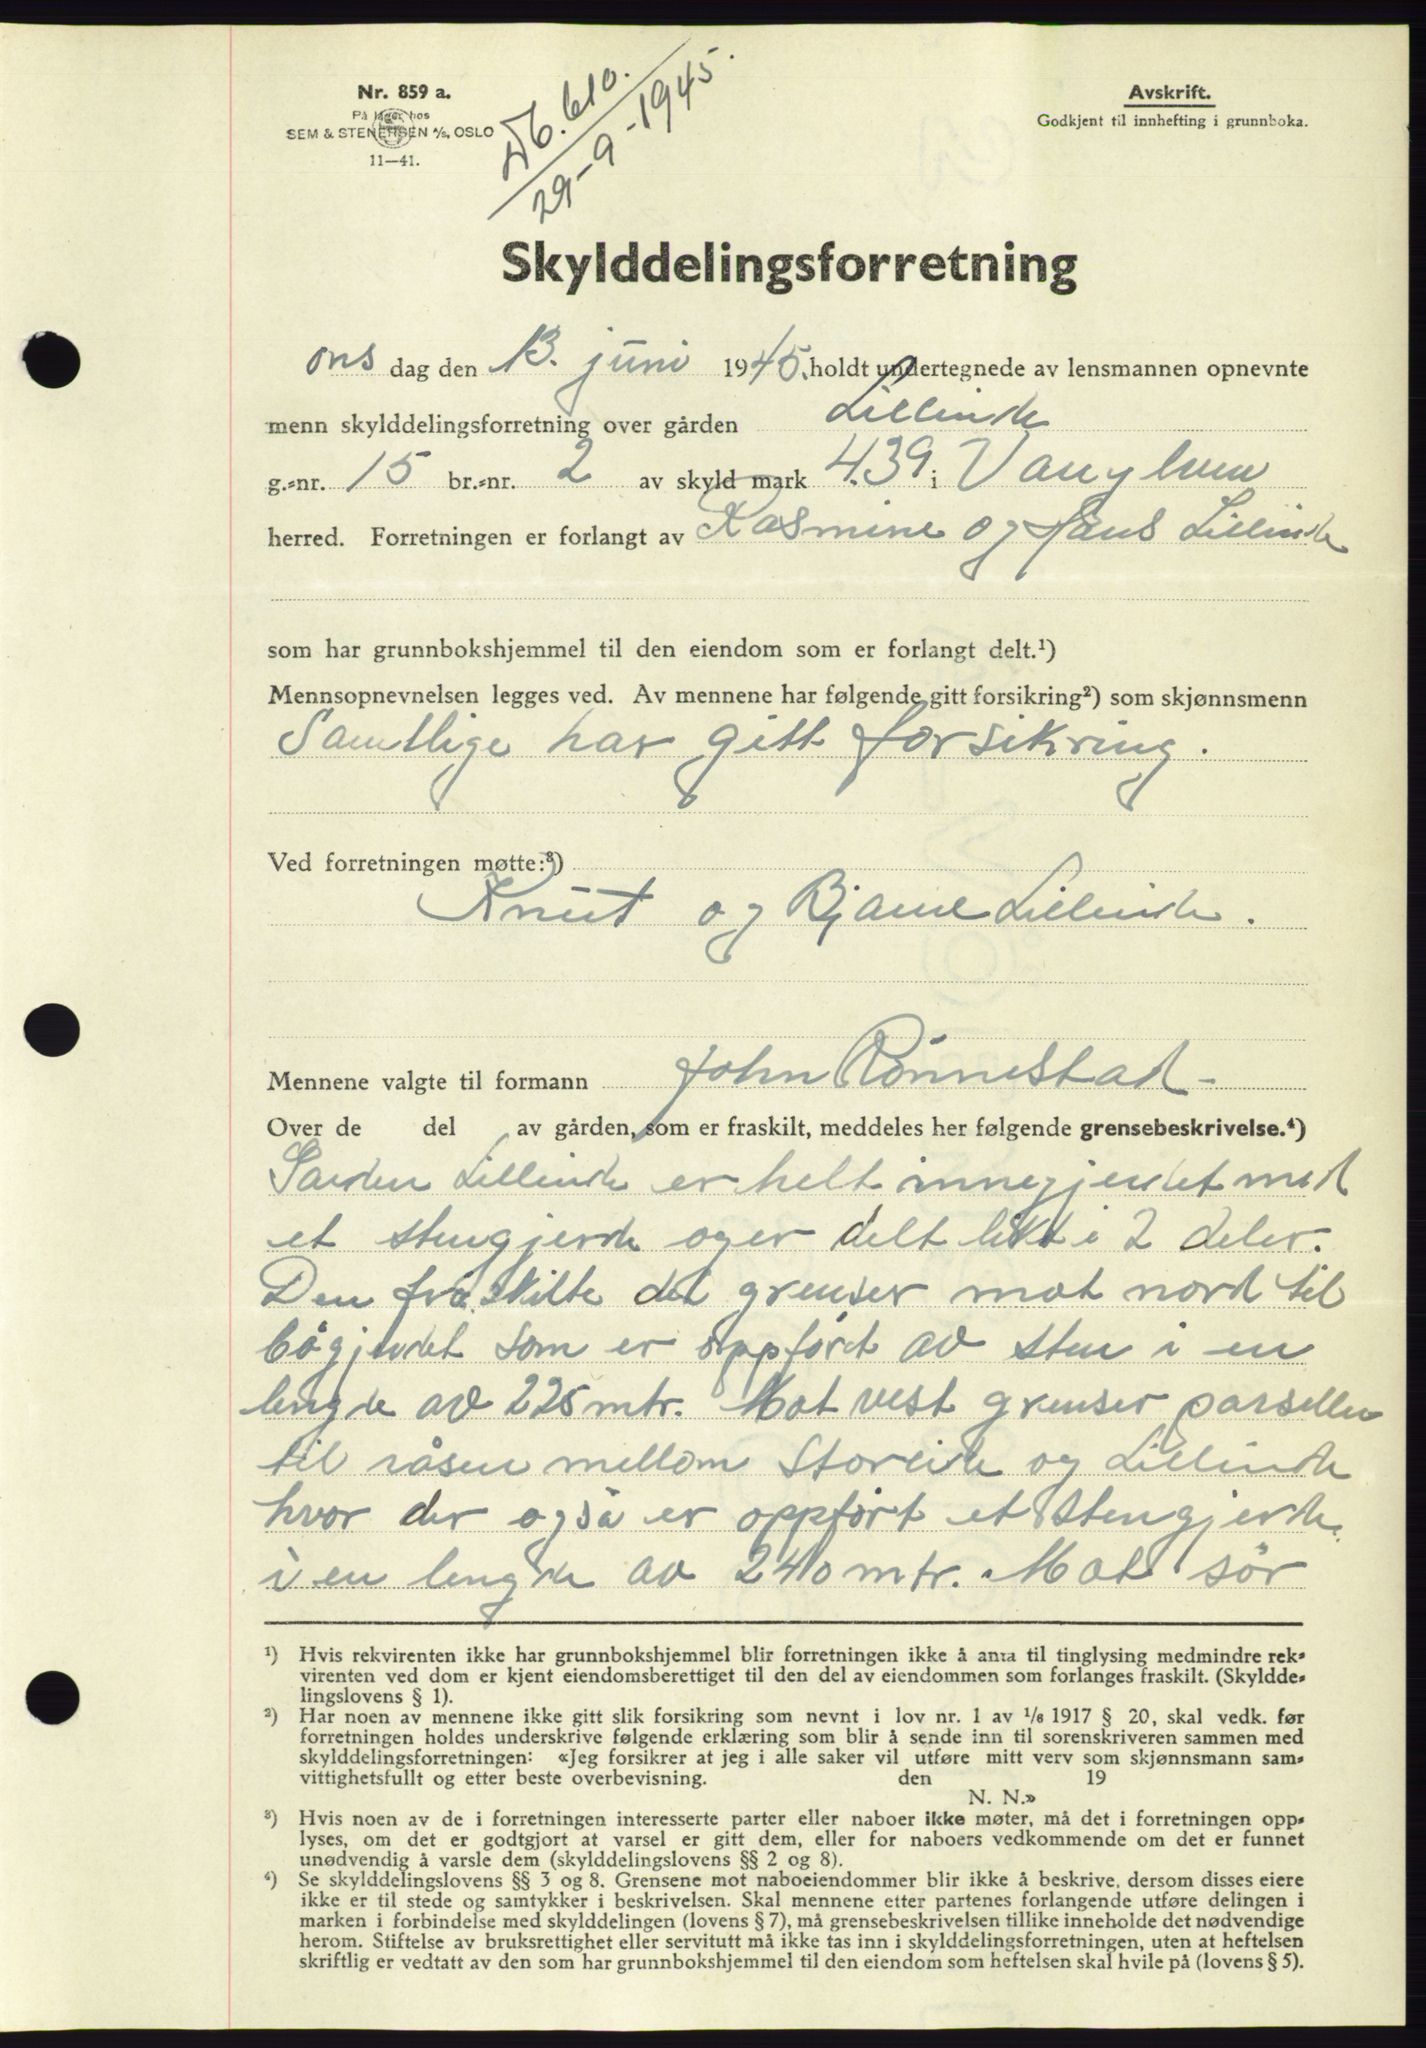 Nr. 859 a.
På lager hos
SEM & STENERSEN A/S, OSLO
11—41.
Db. 610.
29-9-1945.
Avskrift.
Godkjent til innhefting i grunnboka.
Skylddelingsforretning
ons dag den 13. juni 1945. holdt undertegnede av lensmannen opnevnte
menn skylddelingsforretning over gården Lilleeide
g.-nr. 15 br.-nr. 2 av skyld mark 4.39 i Vanylven
herred. Forretningen er forlangt av Rasmine og Hans Lilleeide
som har grunnbokshjemmel til den eiendom som er forlangt delt.¹)
Mennsopnevnelsen legges ved. Av mennene har følgende gitt forsikring²) som skjønnsmenn
Samtlige har gitt forsikring.
Ved forretningen møtte:³)
Knut og Bjarne Lilleeide.
Mennene valgte til formann John Rønnestad-
Over de del av gården, som er fraskilt, meddeles her følgende grensebeskrivelse.⁴)
Garden Lilleeide er helt innegjerdet med
et stengjerde og er delt likt i 2 deler.
Den fraskilte del grenser mot nord til
bøgjerdet som er oppført av sten i en
lengde av 225 mtr. Mot vest grenser parsellen
til råsen mellom Storeide og Lilleeide
hvor der også er oppført et stengjerde
i en lengde av 240 mtr. Mot sør
¹) Hvis rekvirenten ikke har grunnbokshjemmel blir forretningen ikke å anta til tinglysing medmindre rek-
virenten ved dom er kjent eiendomsberettiget til den del av eiendommen som forlanges fraskilt. (Skyldde-
lingslovens § 1).
²) Har noen av mennene ikke gitt slik forsikring som nevnt i lov nr. 1 av 1/6 1917 § 20, skal vedk. før
forretningen holdes underskrive følgende erklæring som blir å sende inn til sorenskriveren sammen med
skylddelingsforretningen: «Jeg forsikrer at jeg i alle saker vil utføre mitt verv som skjønnsmann sam-
vittighetsfullt og etter beste overbevisning. den 19
N. N.»
³) Hvis noen av de i forretningen interesserte parter eller naboer ikke møter, må det i forretningen opp-
lyses, om det er godtgjort at varsel er gitt dem, eller for naboers vedkommende om det er funnet
unødvendig å varsle dem (skylddelingslovens §§ 2 og 8).
⁴) Se skylddelingslovens §§ 3 og 8. Grensene mot naboeiendommer blir ikke å beskrive, dersom disses eiere
ikke er til stede og samtykker i beskrivelsen. Skal mennene etter partenes forlangende utføre delingen i
marken i forbindelse med skylddelingen (lovens § 7), må grensebeskrivelsen tillike inneholde det nødvendige
herom. Stiftelse av bruksrettighet eller servitutt må ikke tas inn i skylddelingsforretningen, uten at heftelsen
skriftlig er vedtatt av den som har grunnbokshjemmel til den eiendom som heftelsen skal hvile på (lovens § 5).